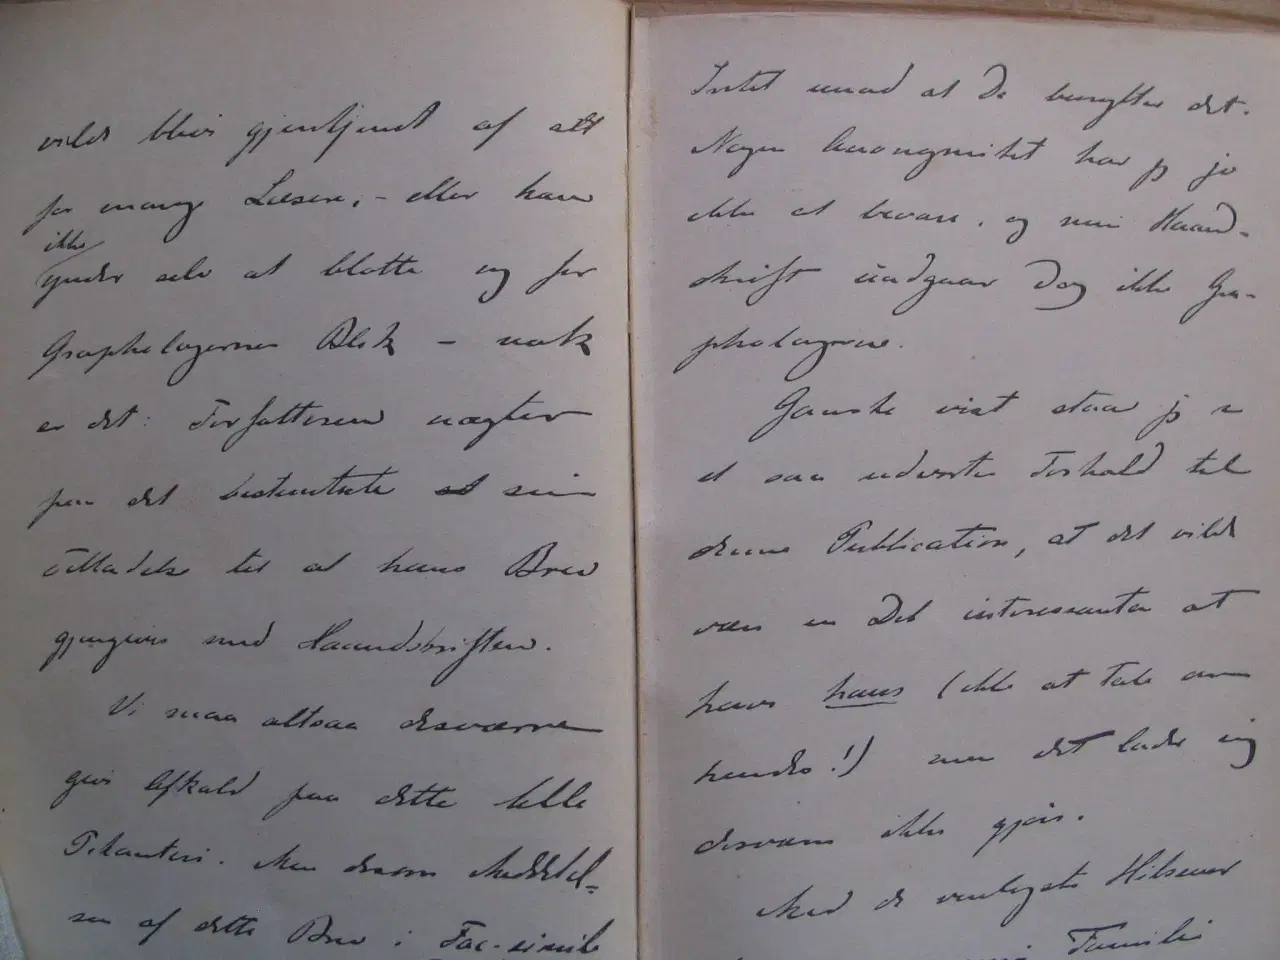 vilde blive gjenkjendt af alt
for mange Læsere; – eller han
ikke
ynder selv at blotte sig for
Graphologernes Blik – nok
er det: Forfatteren nægter
paa det bestemteste sin
Tilladelse til at hans Brev
gjengives med Haandskriften.
Vi maa altsaa desværre
give Afkald paa dette lille
Pikanteri. Men dersom Meddelel-
sen af dette Brev i Fac-simile
Intet imod at De benytter det.
Nogen Anonymitet har jeg jo
ikke at bevare, og min Haand-
skrift undgaar dog ikke Gra-
phologerne.
Ganske vist staar jeg i
et saa yderste Forhold til
denne Publication, at det vilde
være en Del interessantere at
have hans (ikke at tale om
hendes!) men det lader sig
desværre ikke gjøre.
Med de venligste Hilsener
Familie